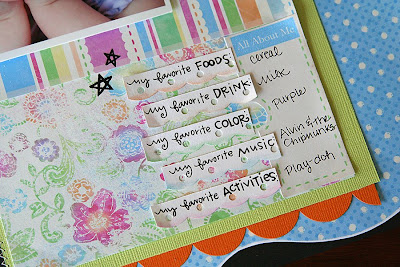 All About Me
my favorite FOODS:
cereal
my favorite DRINK:
Milk
my favorite COLOR:
Purple
my favorite MUSIC
Alvin & the
Chipmunks
my favorite ACTIVITIES:
Play-doh